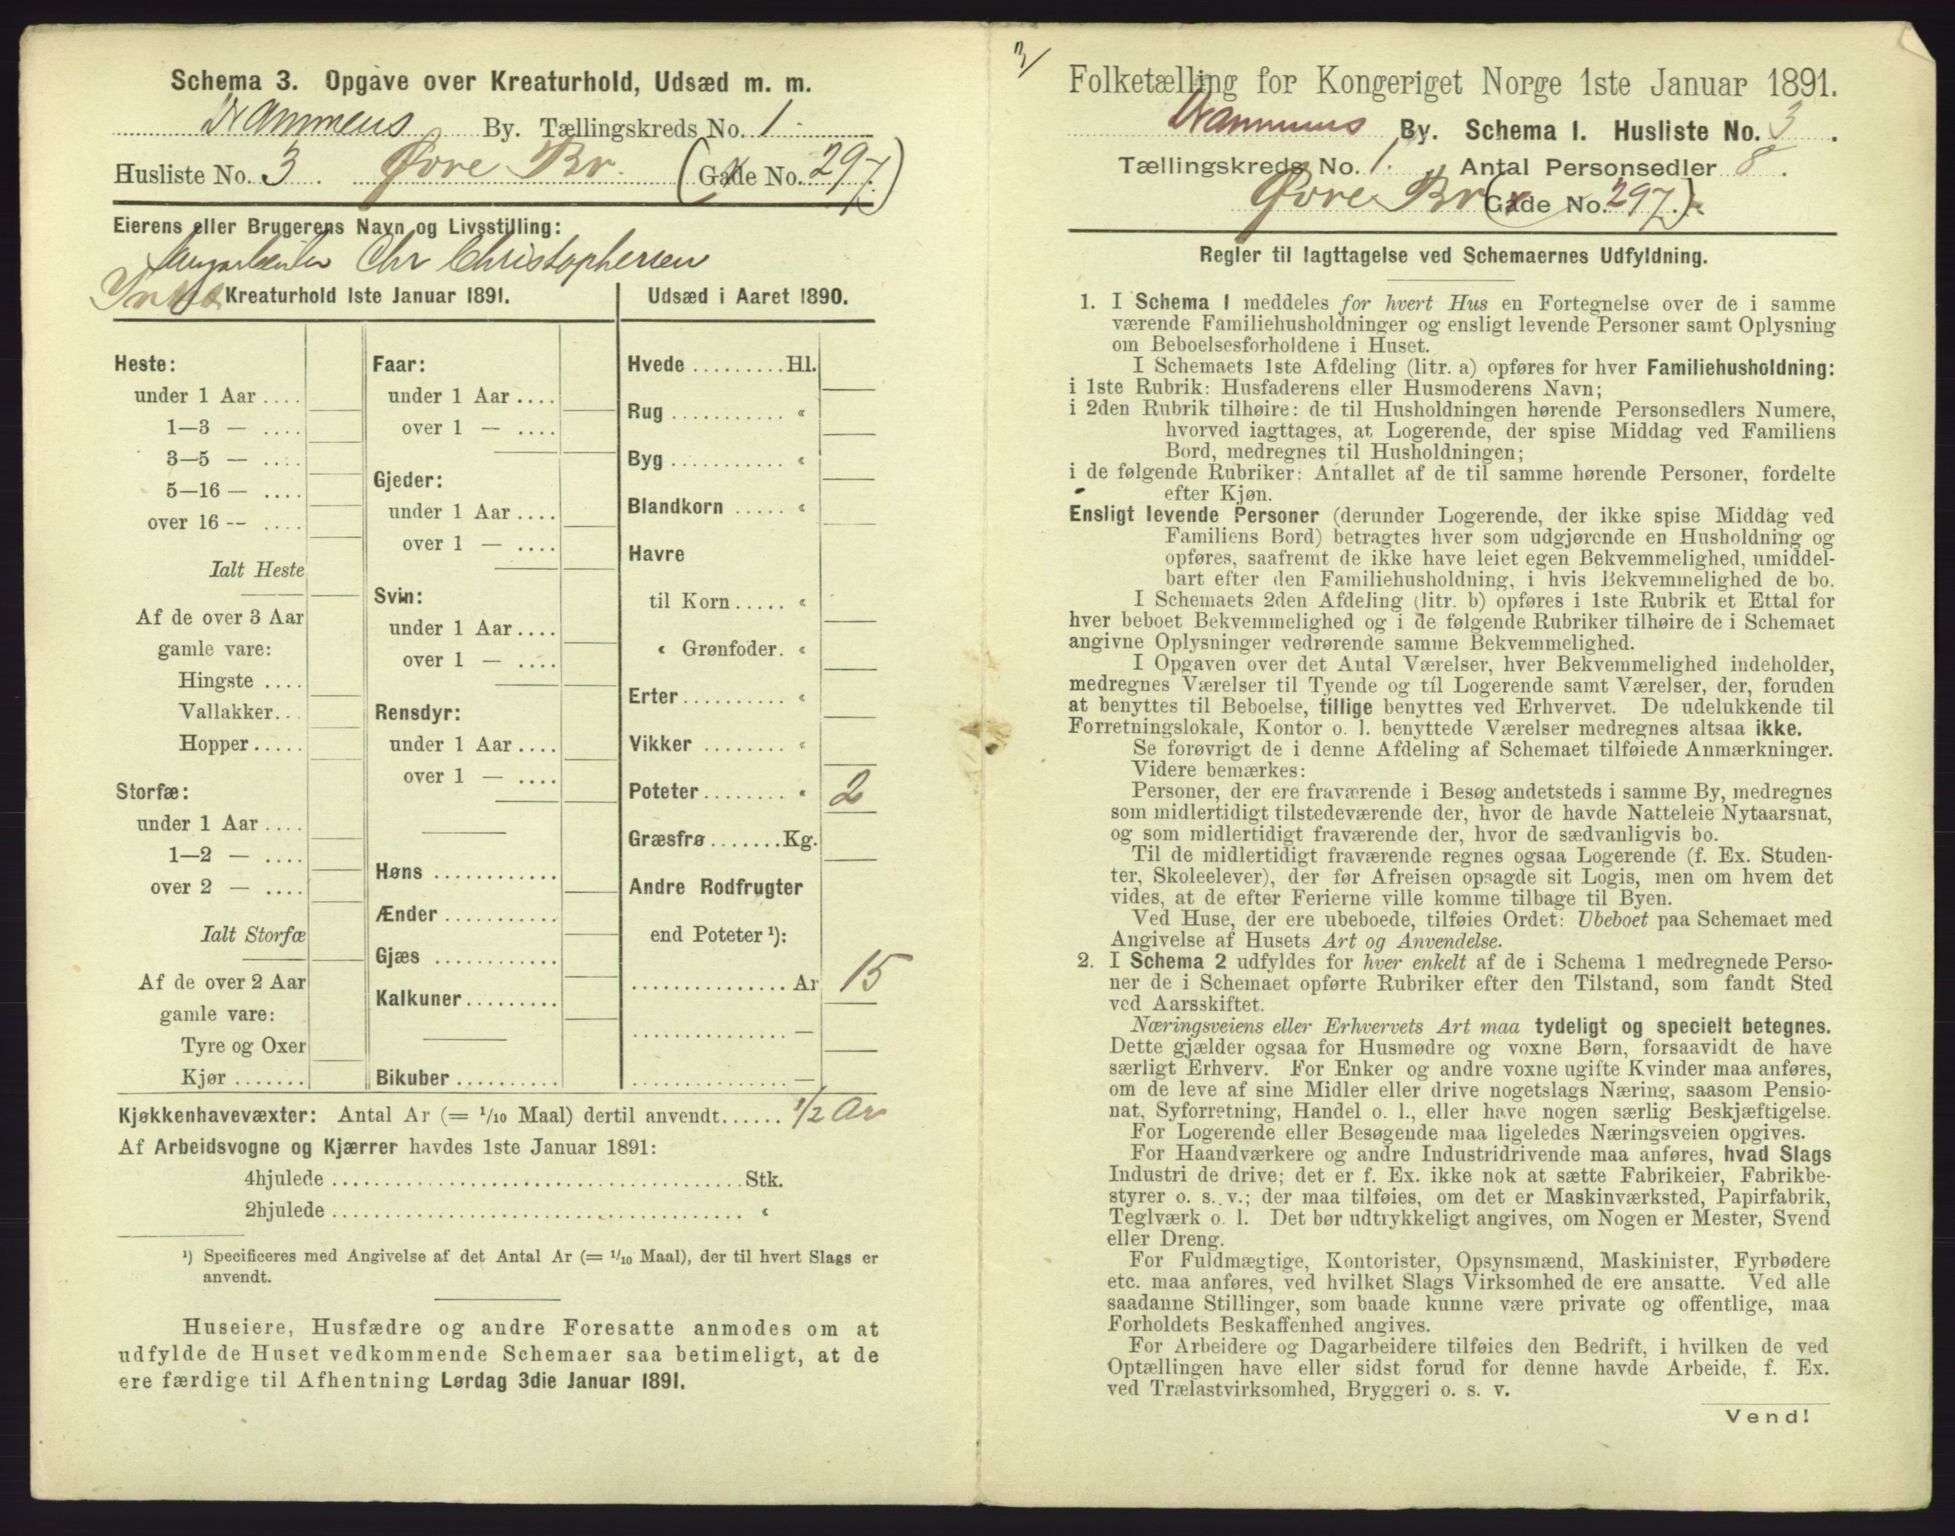 Schema 3. Opgave over Kreaturhold, Udsæd m. m.
Drammens By. Tællingskreds No. 1.
Husliste No. 3. Øvre Br. (Gade No. 297.)
Eierens eller Brugerens Navn og Livsstilling:
Chr Christophersen
Kreaturhold 1ste Januar 1891.
Heste:
under 1 Aar ....
1—3 — ....
3—5 — ....
5—16 — ....
over 16 -- ....
Ialt Heste
Af de over 3 Aar
gamle vare:
Hingste ....
Vallakker...
Hopper.....
Storfæ:
under 1 Aar ....
1—2 — ....
over 2 — ....
Ialt Storfæ
Af de over 2 Aar
gamle vare:
Tyre og Oxer
Kjør .......
Faar:
under 1 Aar ....
over 1 — ....
Gjeder:
under 1 Aar ....
over 1 — ....
Svin:
under 1 Aar ....
over 1 — ....
Rensdyr:
under 1 Aar ....
over 1 — ....
Høns ............
Ænder ...........
Gjæs ............
Kalkuner.........
Bikuber ..........
Udsæd i Aaret 1890.
Hvede .........Hl.
Rug ........... «
Byg ........... «
Blandkorn ..... «
Havre
til Korn ..... «
« Grønfoder. «
Erter .......... «
Vikker ........ «
Poteter ........ « 2
Græsfrø .......Kg.
Andre Rodfrugter
end Poteter ¹):
............... Ar 15
............... —
............... —
Kjøkkenhavevæxter: Antal Ar (= 1/10 Maal) dertil anvendt...... 1/2 Ar
Af Arbeidsvogne og Kjærrer havdes 1ste Januar 1891:
4hjulede ....................................... Stk.
2hjulede ....................................... «
¹) Specificeres med Angivelse af det Antal Ar (= 1/10 Maal), der til hvert Slags er
anvendt.
Huseiere, Husfædre og andre Foresatte anmodes om at
udfylde de Huset vedkommende Schemaer saa betimeligt, at de
ere færdige til Afhentning Lørdag 3die Januar 1891.
3/
Folketælling for Kongeriget Norge 1ste Januar 1891.
Drammens By. Schema I. Husliste No. 3.
Tællingskreds No. 1. Antal Personsedler 8.
Øvre Br (Gade No. 297.)
Regler til Iagttagelse ved Schemaernes Udfyldning.
1. I Schema I meddeles for hvert Hus en Fortegnelse over de i samme
værende Familiehusholdninger og ensligt levende Personer samt Oplysning
om Beboelsesforholdene i Huset.
I Schemaets 1ste Afdeling (litr. a) opføres for hver Familiehusholdning:
i 1ste Rubrik: Husfaderens eller Husmoderens Navn;
i 2den Rubrik tilhøire: de til Husholdningen hørende Personsedlers Numere,
hvorved iagttages, at Logerende, der spise Middag ved Familiens
Bord, medregnes til Husholdningen;
i de følgende Rubriker: Antallet af de til samme hørende Personer, fordelte
efter Kjøn.
Ensligt levende Personer (derunder Logerende, der ikke spise Middag ved
Familiens Bord) betragtes hver som udgjørende en Husholdning og
opføres, saafremt de ikke have leiet egen Bekvemmelighed, umiddel-
bart efter den Familiehusholdning, i hvis Bekvemmelighed de bo.
I Schemaets 2den Afdeling (litr. b) opføres i 1ste Rubrik et Ettal for
hver beboet Bekvemmelighed og i de følgende Rubriker tilhøire de i Schemaet
angivne Oplysninger vedrørende samme Bekvemmelighed.
I Opgaven over det Antal Værelser, hver Bekvemmelighed indeholder,
medregnes Værelser til Tyende og til Logerende samt Værelser, der, foruden
at benyttes til Beboelse, tillige benyttes ved Erhvervet. De udelukkende til
Forretningslokale, Kontor o. l. benyttede Værelser medregnes altsaa ikke.
Se forøvrigt de i denne Afdeling af Schemaet tilføiede Anmærkninger.
Videre bemærkes:
Personer, der ere fraværende i Besøg andetsteds i samme By, medregnes
som midlertidigt tilstedeværende der, hvor de havde Natteleie Nytaarsnat,
og som midlertidigt fraværende der, hvor de sædvanligvis bo.
Til de midlertidigt fraværende regnes ogsaa Logerende (f. Ex. Studen-
ter, Skoleelever), der før Afreisen opsagde sit Logis, men om hvem det
vides, at de efter Ferierne ville komme tilbage til Byen.
Ved Huse, der ere ubeboede, tilføies Ordet: Ubeboet paa Schemaet med
Angivelse af Husets Art og Anvendelse.
2. I Schema 2 udfyldes for hver enkelt af de i Schema 1 medregnede Perso-
ner de i Schemaet opførte Rubriker efter den Tilstand, som fandt Sted
ved Aarsskiftet.
Næringsveiens eller Erhvervets Art maa tydeligt og specielt betegnes.
Dette gjælder ogsaa for Husmødre og voxne Børn, forsaavidt de have
særligt Erhverv. For Enker og andre voxne ugifte Kvinder maa anføres,
om de leve af sine Midler eller drive nogetslags Næring, saasom Pensio-
nat, Syforretning, Handel o. l., eller have nogen særlig Beskjæftigelse.
For Logerende eller Besøgende maa ligeledes Næringsveien opgives.
For Haandværkere og andre Industridrivende maa anføres, hvad Slags
Industri de drive; det er f. Ex. ikke nok at sætte Fabrikeier, Fabrikbe-
styrer o. s. v.; der maa tilføies, om det er Maskinværksted, Papirfabrik,
Teglværk o. l. Det bør udtrykkeligt angives, om Nogen er Mester, Svend
eller Dreng.
For Fuldmægtige, Kontorister, Opsynsmænd, Maskinister, Fyrbødere
etc. maa anføres, ved hvilket Slags Virksomhed de ere ansatte. Ved alle
saadanne Stillinger, som baade kunne være private og offentlige, maa
Forholdets Beskaffenhed angives.
For Arbeidere og Dagarbeidere tilføies den Bedrift, i hvilken de ved
Optællingen have eller sidst forud for denne havde Arbeide, f. Ex.
ved Trælastvirksomhed, Bryggeri o. s. v.
Vend!